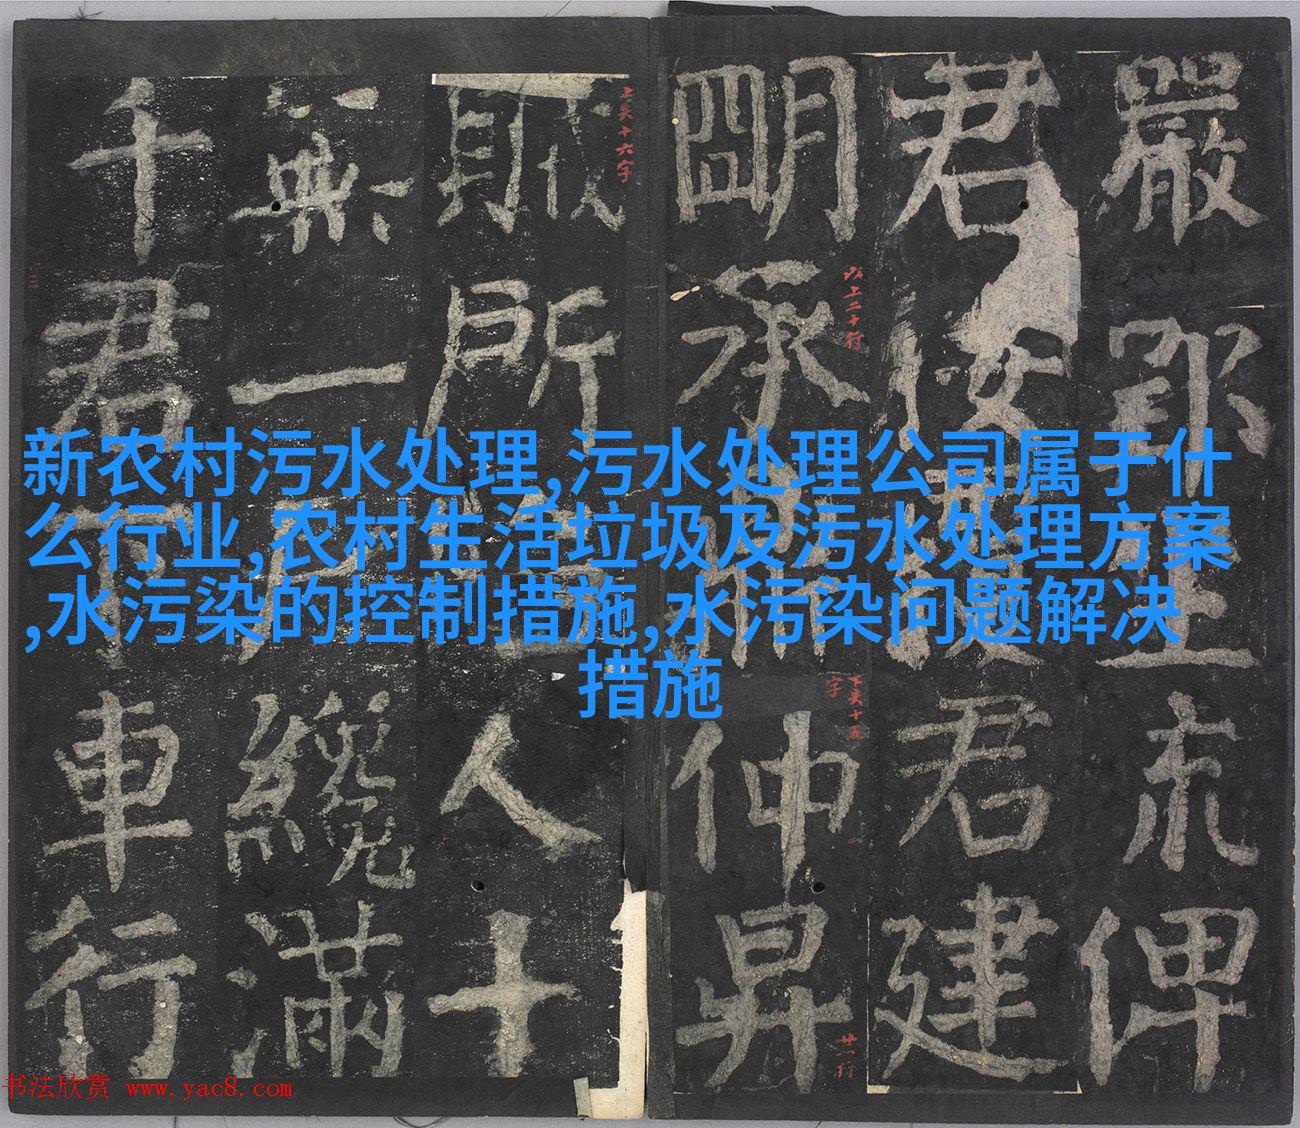 嚴 郡 王 市 俾
君 使 君 建
朙 承 仲 昇
賊 所 人 十
無 一 戶 纔 滿
千 君 下 車 行
上失十六字
以上二十行
下失十五字
廿一行
新农村污水处理,污水处理公司属于什
么行业,农村生活垃圾及污水处理方案
,水污染的控制措施,水污染问题解决
措施
书法欣赏 www.yac8.com